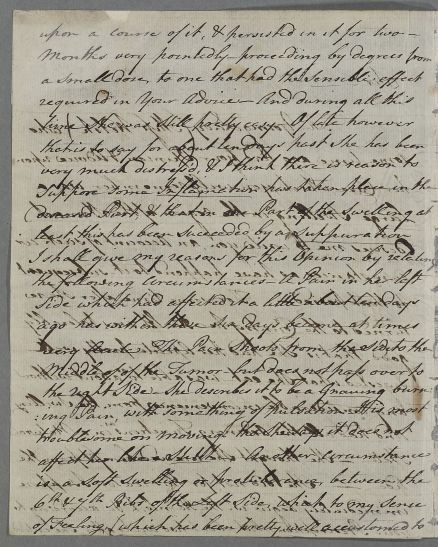 upon a course of it, & persisted in it for two
Months very pointedly proceeding by degrees from
a small dose, to one that had the sensible effect
required in Your Advice – And during all this
time she was still easy. Of late however
that is to say for about ten days past She has been
very much distress'd, & I think there is reason to
Suppose some has taken place in the
Part, & that in one Part of the Swelling at
least this has been Succeeded by a Suppuration
I shall give my reasons for this Opinion by relating
the following Circumstances – A Pain in her left
Side which had affected it a little about ten days
ago has within these six days become at times
very The Pain Shoots from the Side to the
Middle of the Tumor but does not pass over to
the right Side. She describes it to be a Gnawing burn
:ing Pain with something of It is most
troublesome on moving it does not
affect her Another Circumstance
is a Soft Swelling or protuberance between the
6th & 7th Ribs of the left Side, which to my Sense
of Feeling (which has been pretty well accustomed to